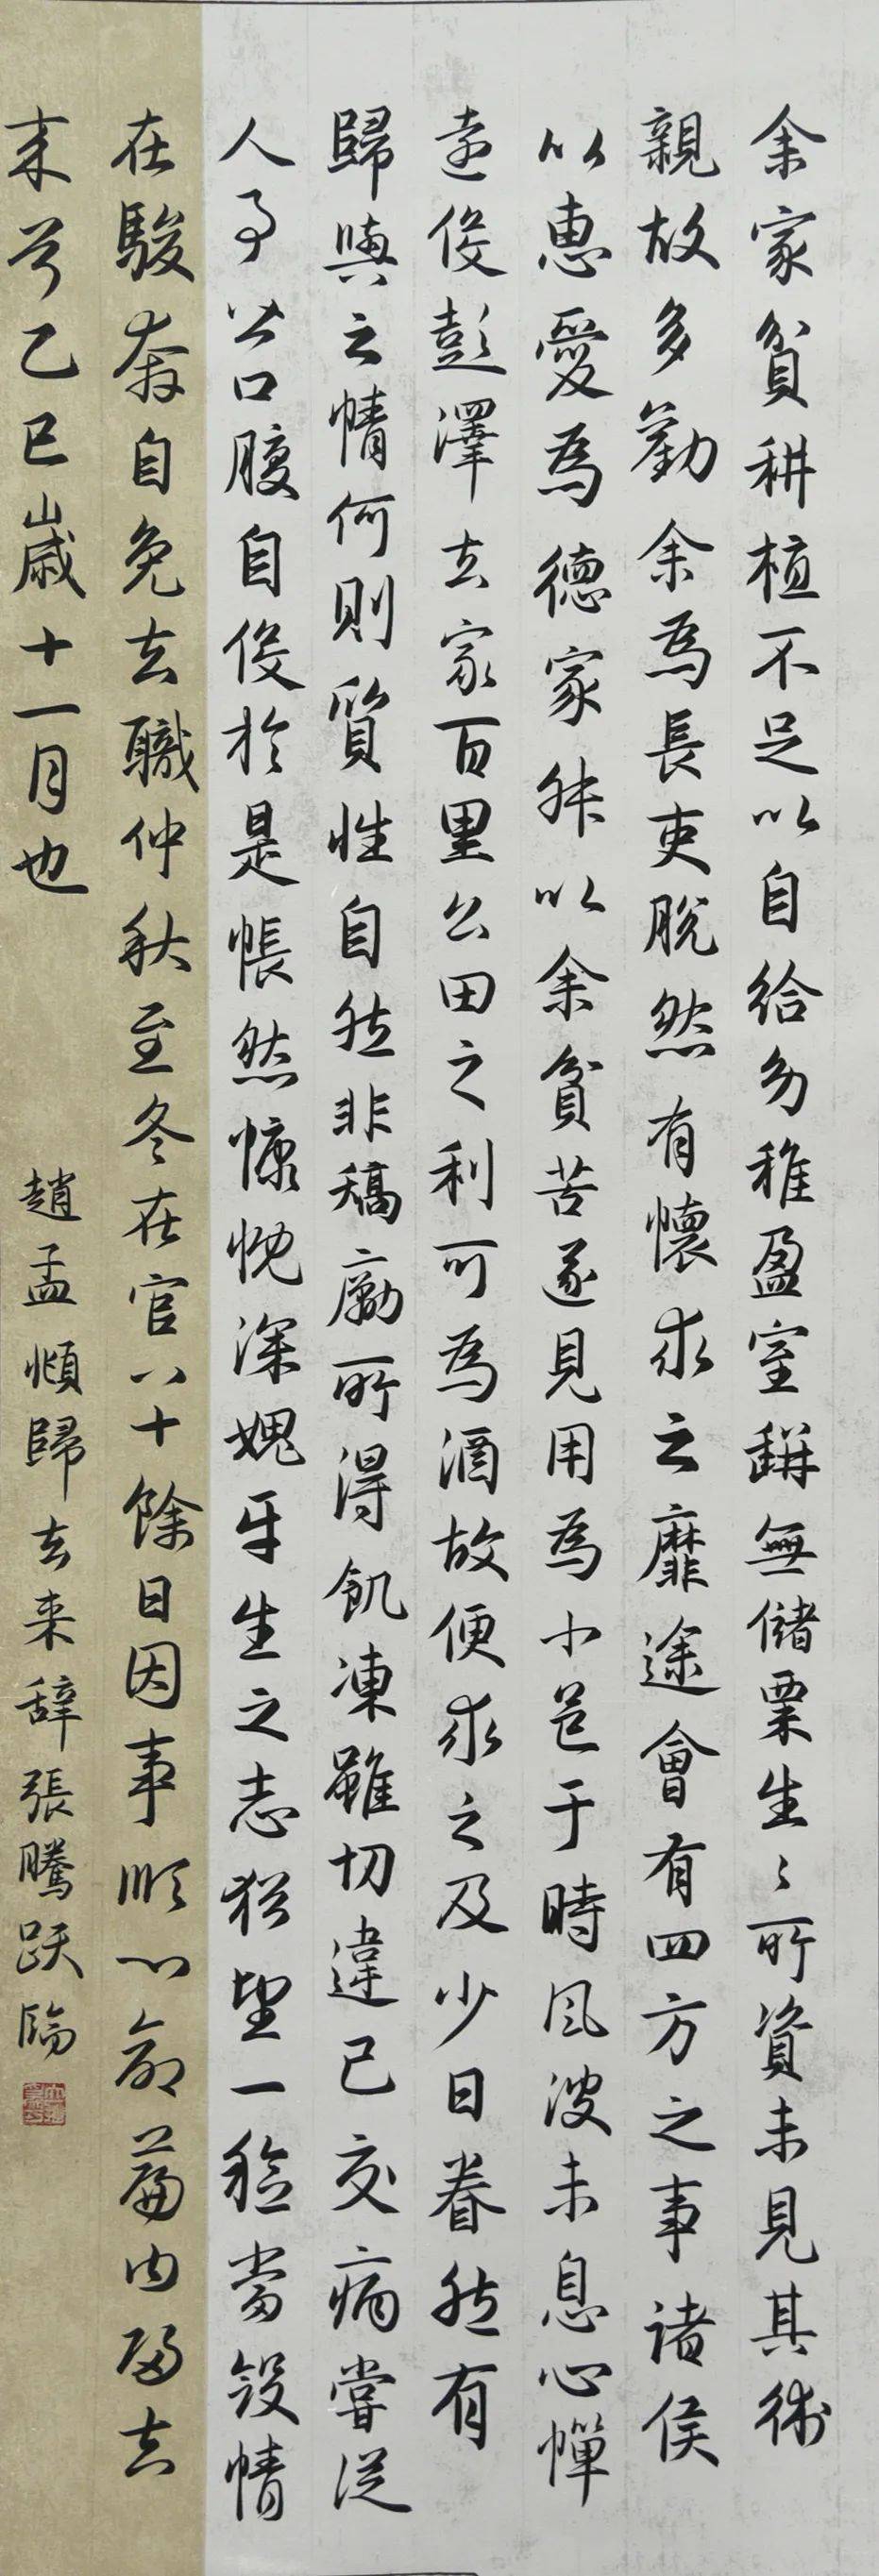 余家貧耕植不足以自給幼稚盈室缾無儲粟生〻所資未見其術
親故多勸余為長吏脫然有懷求之靡途會有四方之事諸侯
以惠愛為德家叔以余貧苦遂見用為小邑于時風波未息心憚
遠役彭澤去家百里公田之利可為酒故便求之及少日眷然有
歸與之情何則質性自然非矯勵所得飢凍雖切違己交病嘗從
人事皆口腹自役於是悵然慷慨深媿平生之志猶望一稔當斂情
在駿奔自免去職仲秋至冬在官八十餘日因事順心命篇曰歸去
来兮乙巳歲十一月也
趙孟頫歸去来辞張騰跃臨